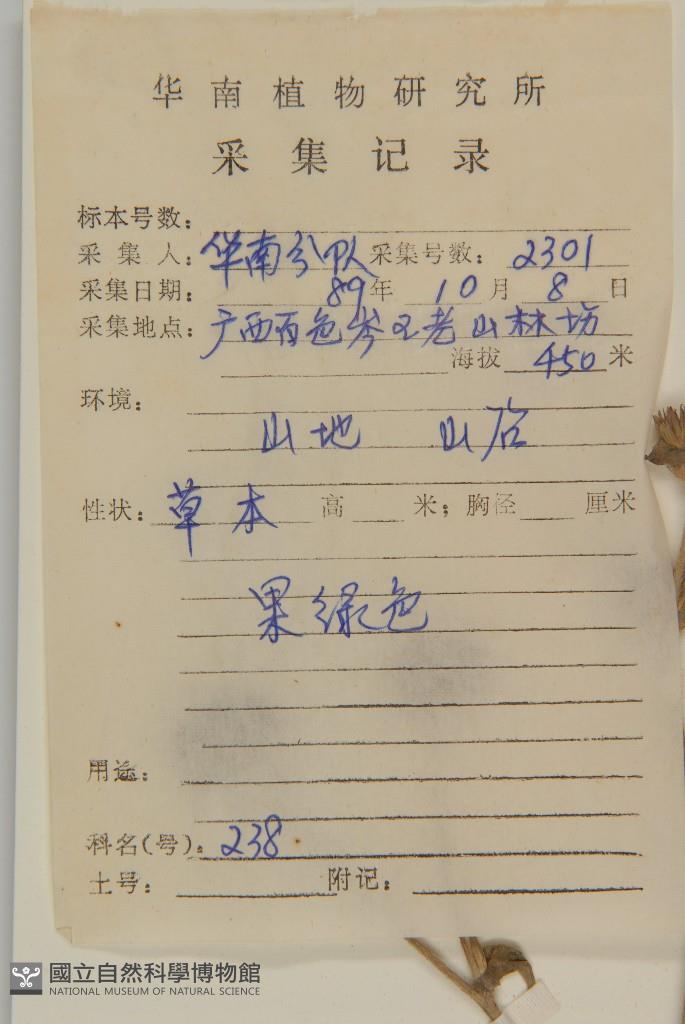 华南植物研究所
采集记录
标本号数:
采集人: 华南分队 采集号数: 2301
采集日期: 89年 10月 8日
采集地点: 广西百色岑王老山林场
海拔 450 米
环境:
山地 山谷
性状: 草本 高 米; 胸径 厘米
果绿色
用途:
科名(号): 238
土号: 附记:
國立自然科學博物館
NATIONAL MUSEUM OF NATURAL SCIENCE